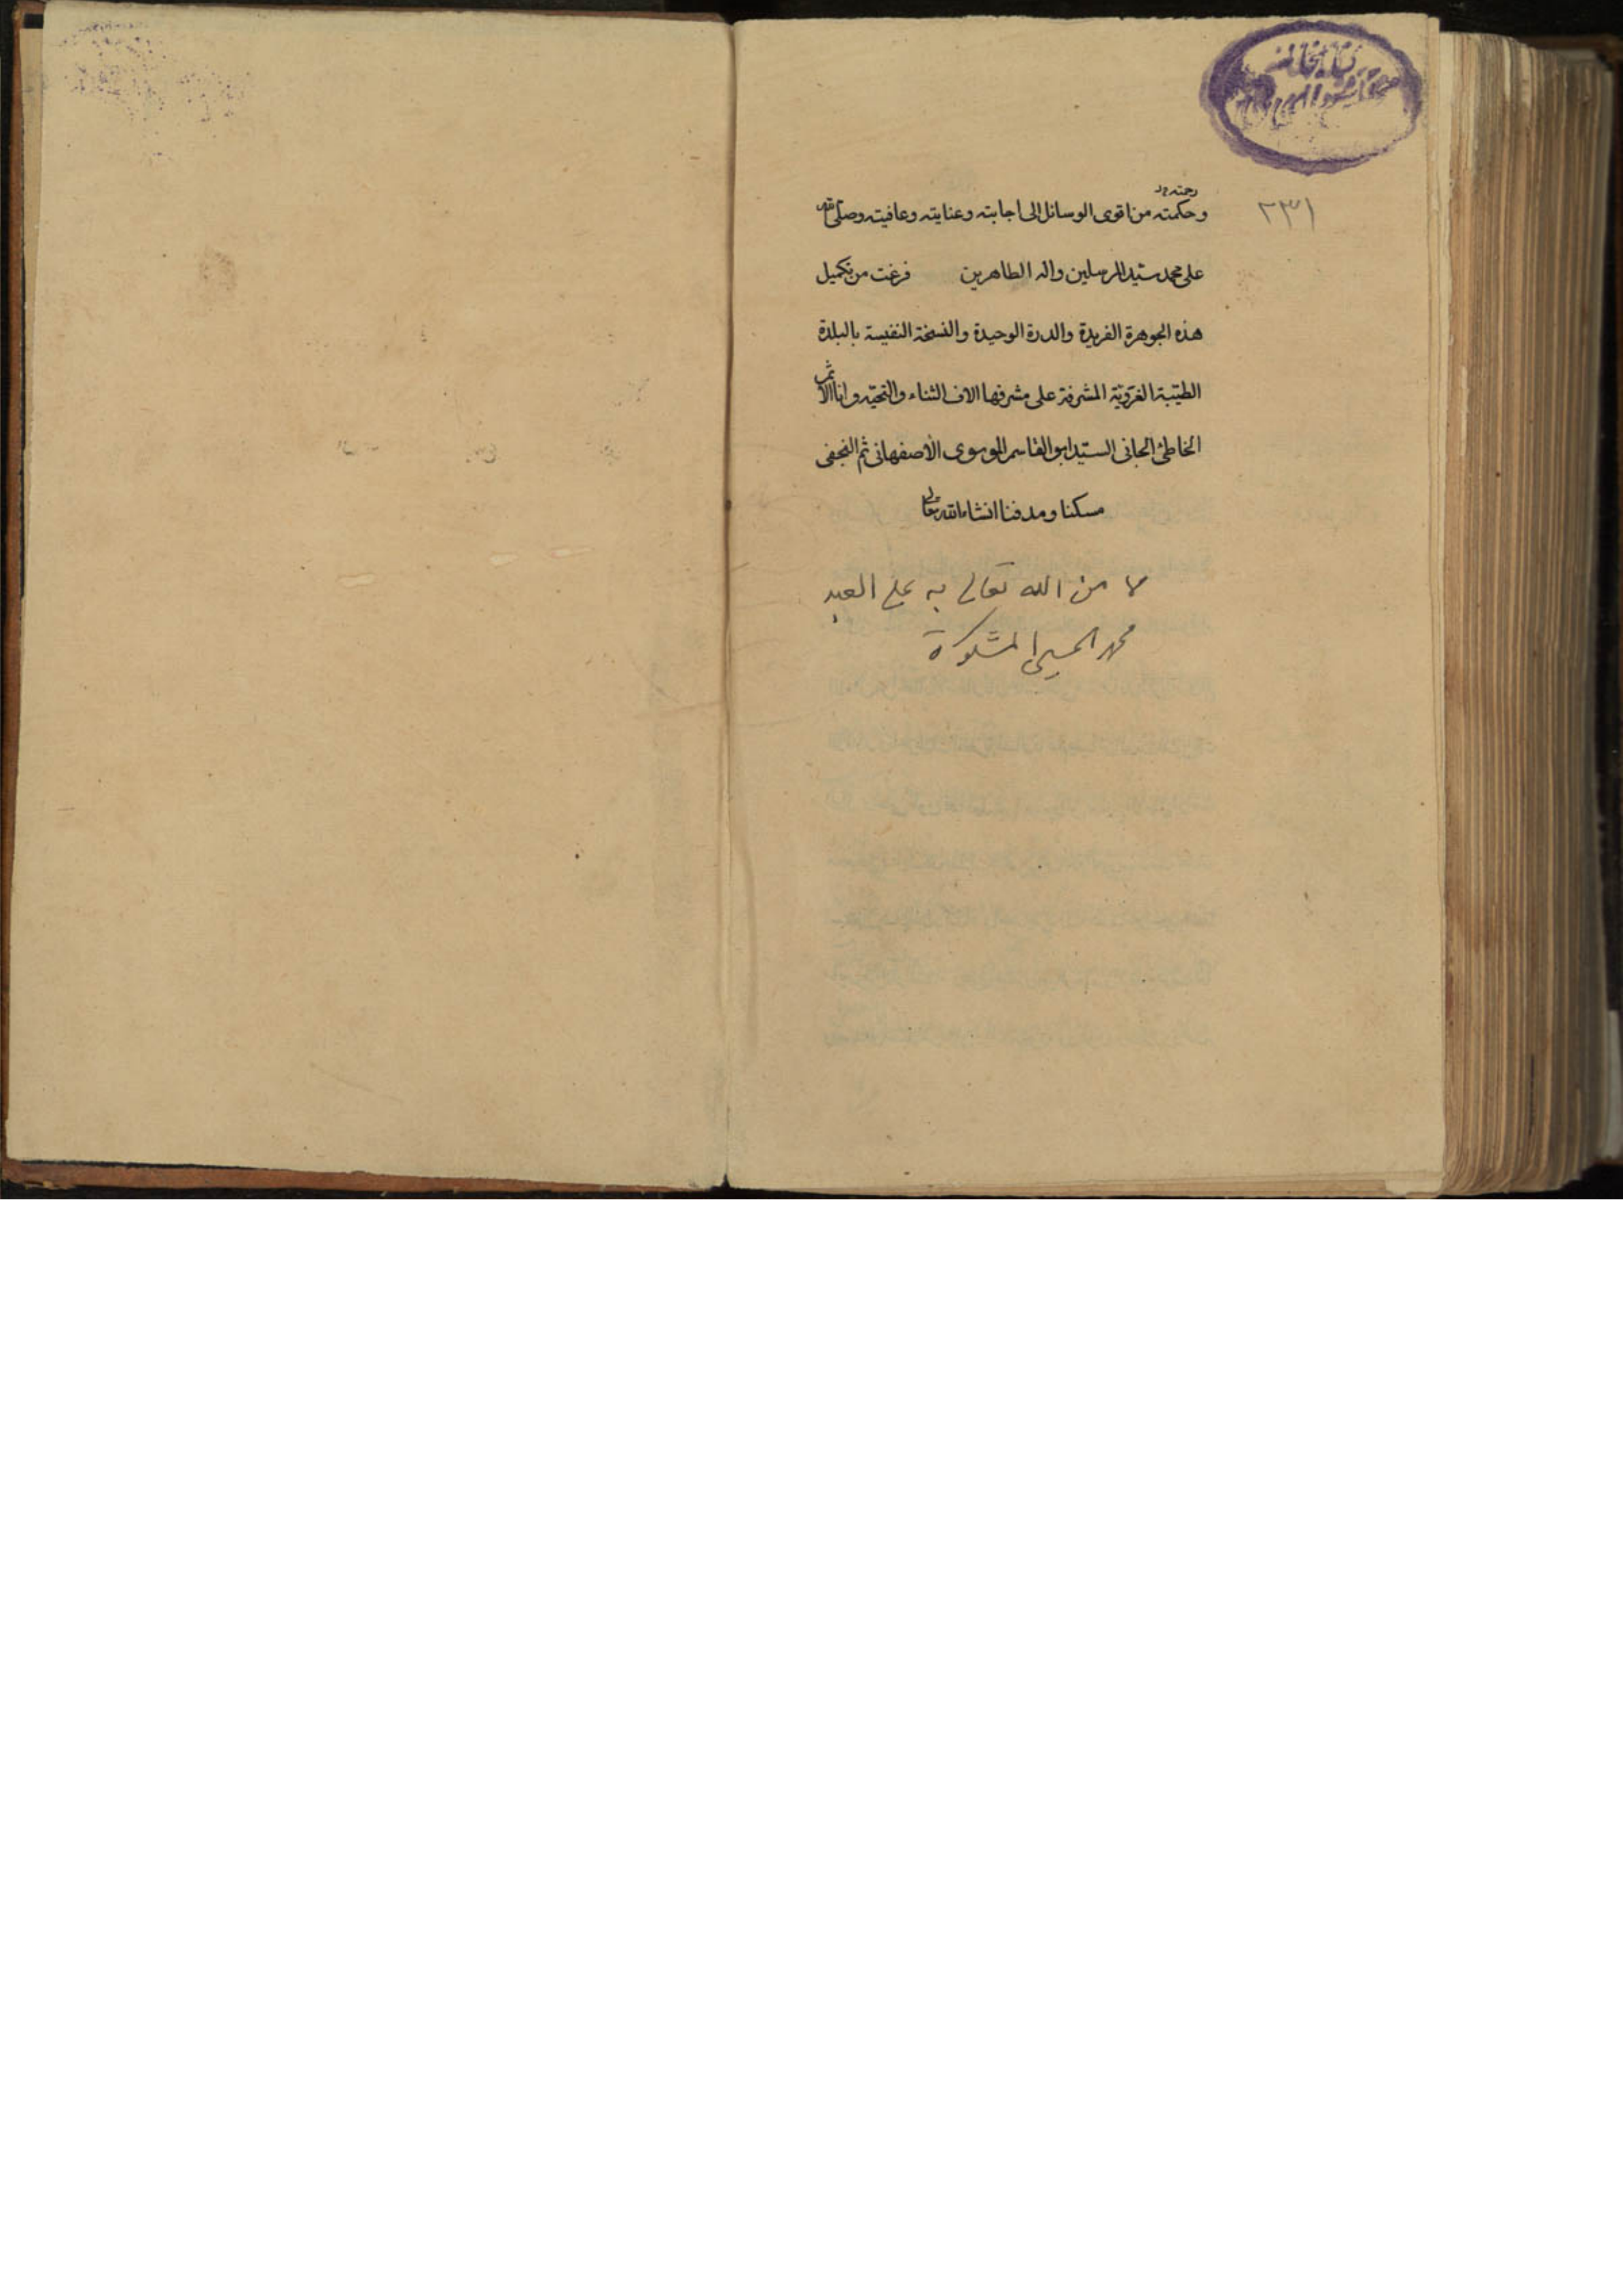 رحمته
وحكمته من اقوى الوسائل الى اجابته وعنايته وعافيته وصلى الله
٢٣١
على محمد سيد المرسلين واله الطاهرين فرغت من تكميل
هذه الجوهرة الفريدة والدرة الوحيدة والنسخة النفيسة بالبلدة
الطيبة الغروية المشرفة على مشرفها الاف الثناء والتحية وانا الاثم
الخاطئ الجانى السيد ابو القاسم الموسوى الأصفهانى ثم النجفى
مسكنا ومدفنا انشاء الله تعالى
مما من الله تعالى به على العبد
محمد الحسينى المشكوة